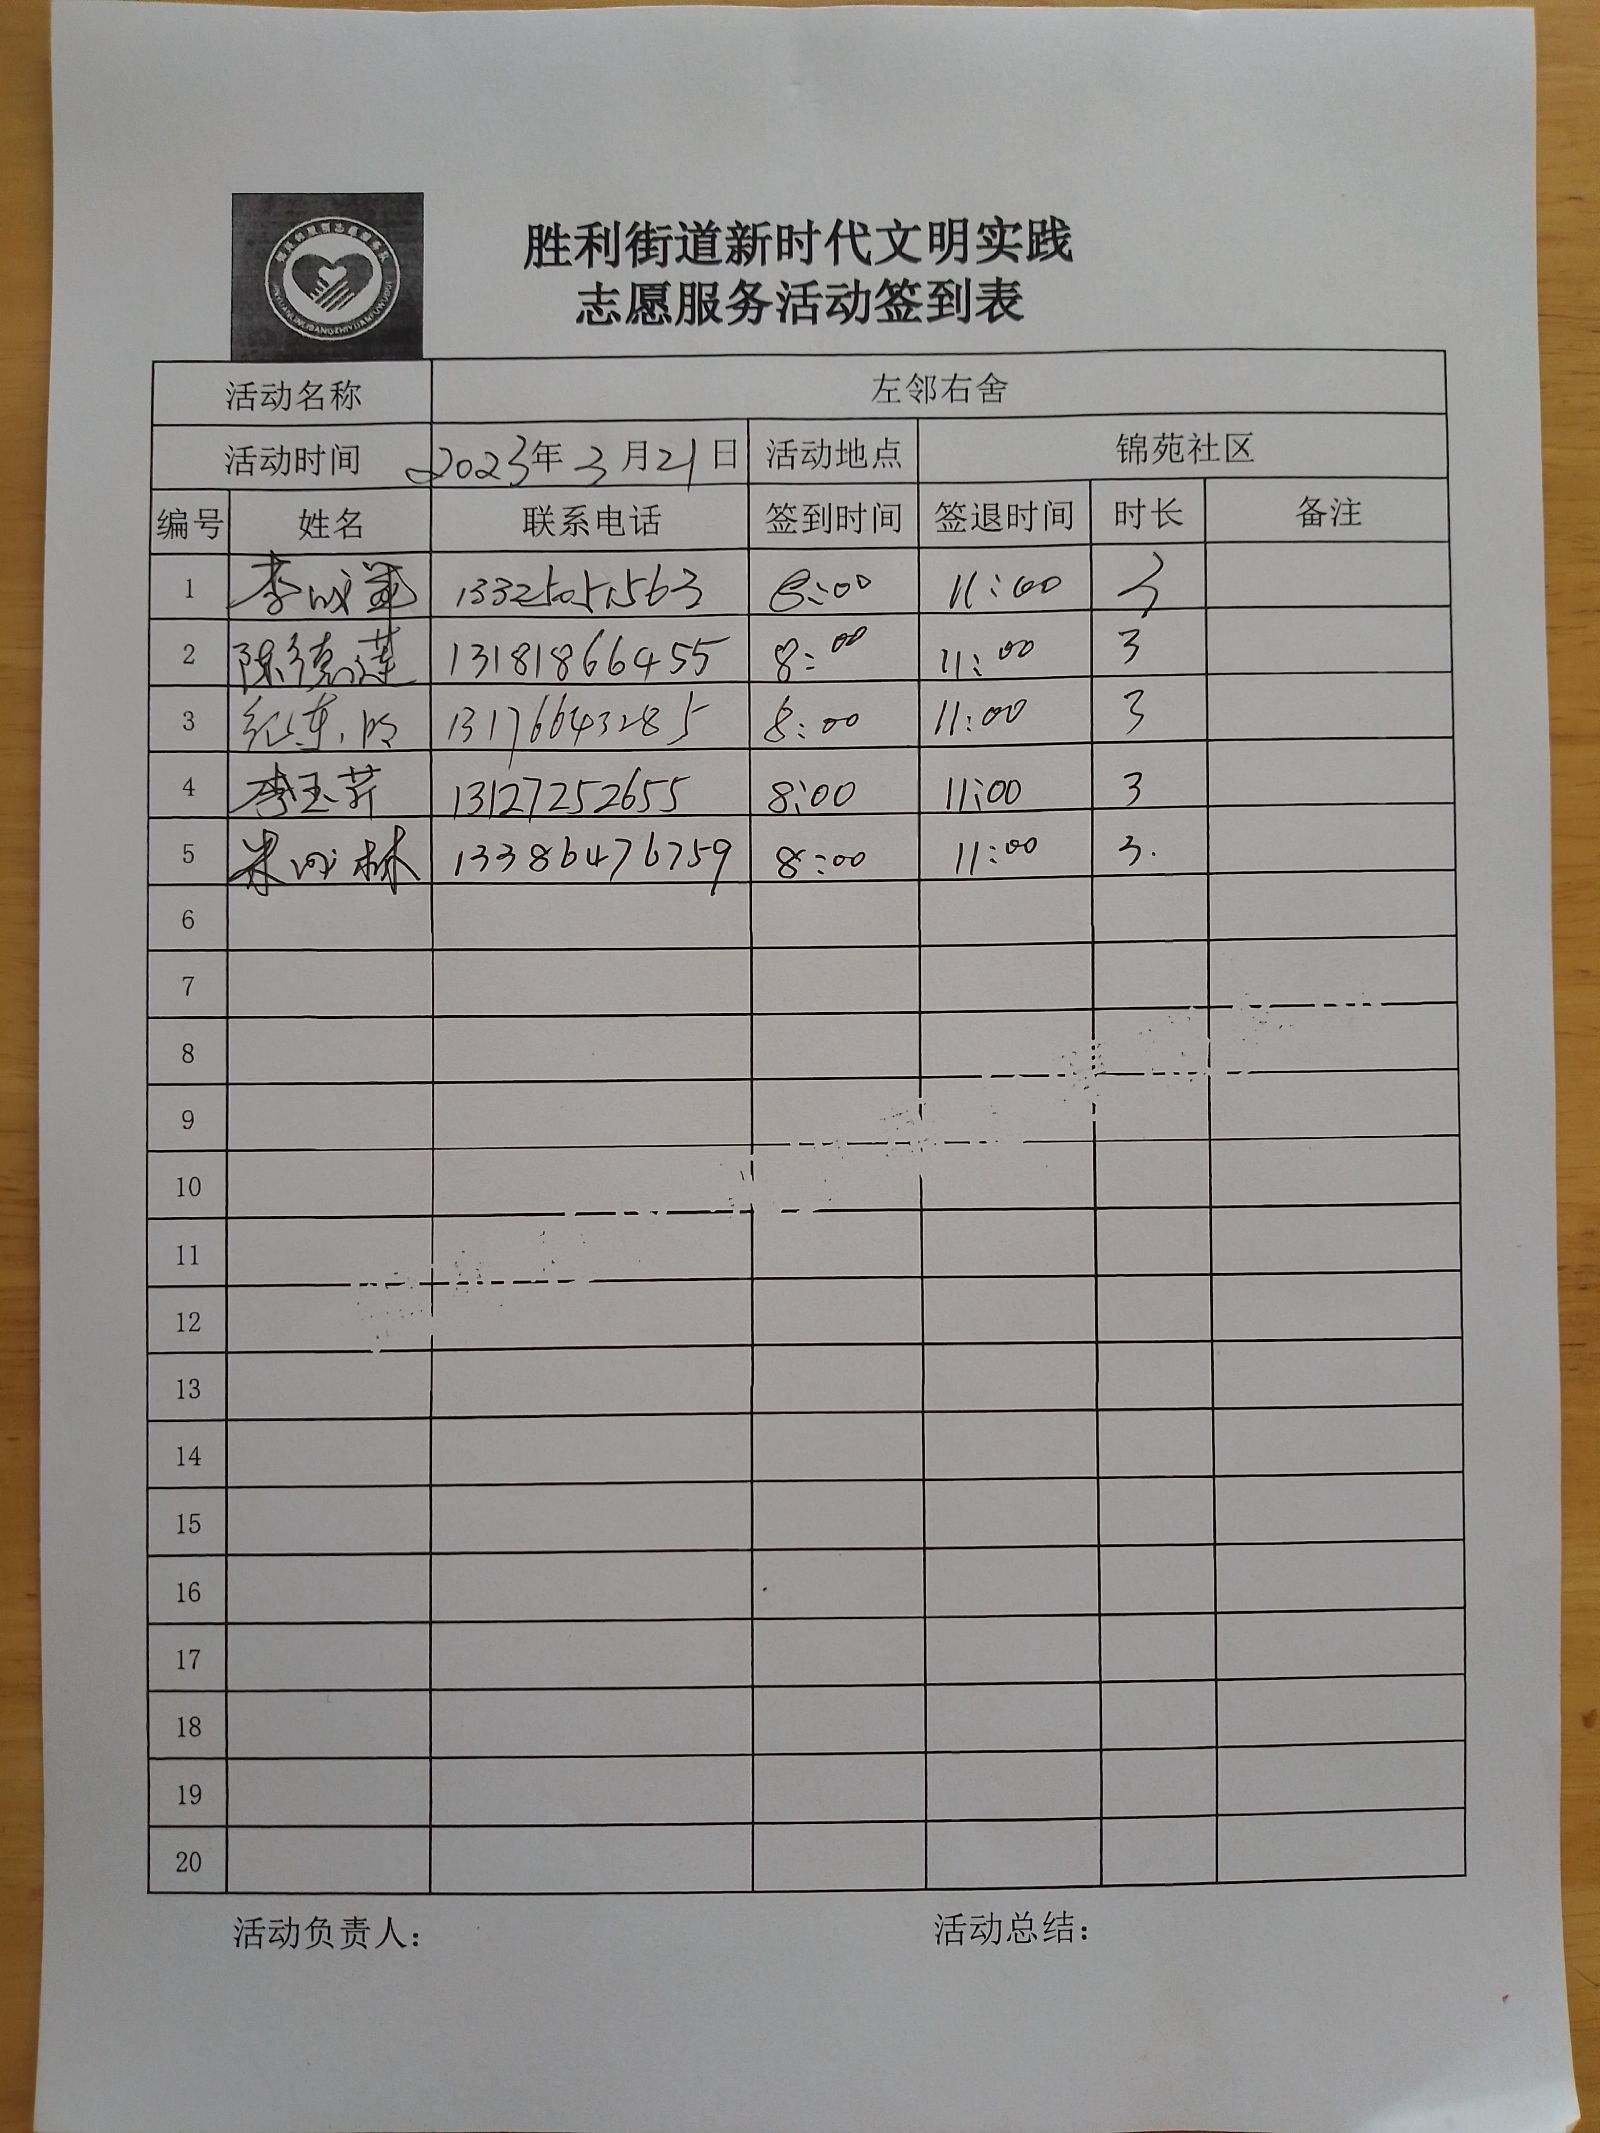 胜利街道新时代文明实践
志愿服务活动签到表
活动名称 左邻右舍
活动时间 2023年3月21日 活动地点 锦苑社区
编号 姓名 联系电话 签到时间 签退时间 时长 备注
1 李成 13325051563 8:00 11:00 3
2 陈德莲 13181866455 8:00 11:00 3
3 纪东明 13176643285 8:00 11:00 3
4 李玉芹 13127252655 8:00 11:00 3
5 米成林 13386476759 8:00 11:00 3.
6
7
8
9
10
11
12
13
14
15
16
17
18
19
20
活动负责人: 活动总结: